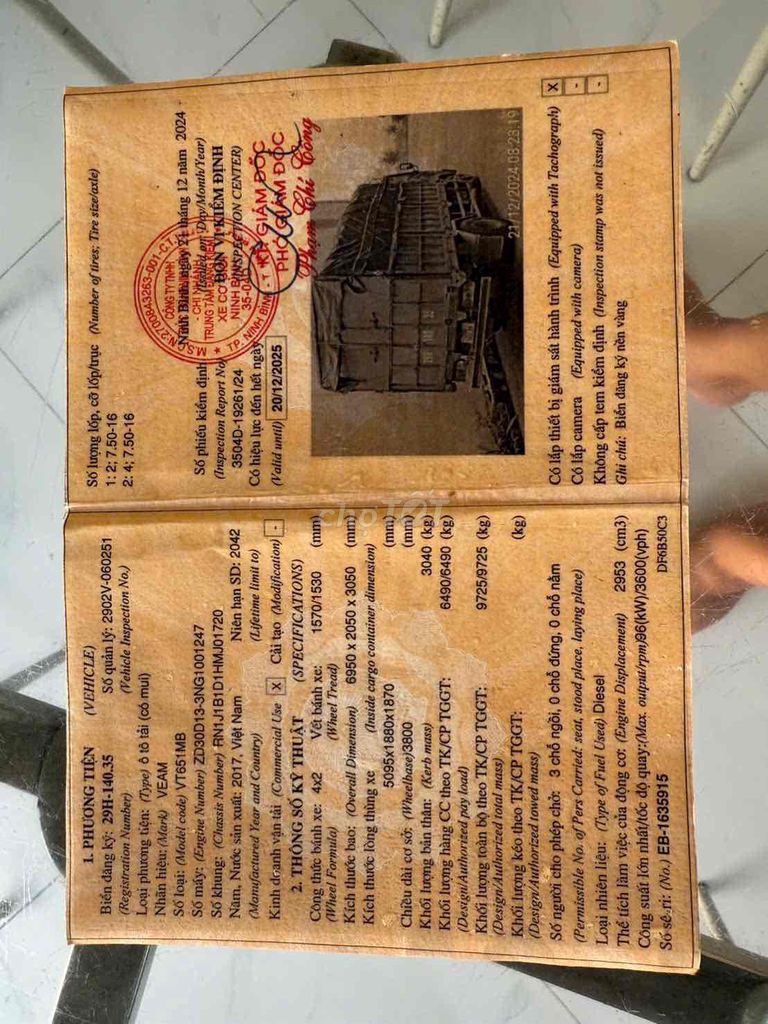 1. PHƯƠNG TIỆN (VEHICLE)
Biển đăng ký: 29H-140.35 Số quản lý: 2902V-060251
(Registration Number) (Vehicle Inspection No.)
Loại phương tiện: (Type) ô tô tải (có mui)
Nhãn hiệu: (Mark) VEAM
Số loại: (Model code) VT651MB
Số máy: (Engine Number) ZD30D13-3NG1001247
Số khung: (Chassis Number) RN1J1B1D1HMJ01720
Năm, Nước sản xuất: 2017, Việt Nam Niên hạn SD: 2042
(Manufactured Year and Country) (Lifetime limit to)
Kinh doanh vận tải (Commercial Use) X Cải tạo (Modification) -
2. THÔNG SỐ KỸ THUẬT (SPECIFICATIONS)
Công thức bánh xe: 4x2 Vết bánh xe: 1570/1530 (mm
(Wheel Formula) (Wheel Tread)
Kích thước bao: (Overall Dimension) 6950 x 2050 x 3050 (mm
Kích thước lòng thùng xe (Inside cargo container dimension)
5095x1880x1870 (mm
Chiều dài cơ sở: (Wheelbase) 3800 (mm
Khối lượng bản thân: (Kerb mass) 3040 (kg)
Khối lượng hàng CC theo TK/CP TGGT: 6490/6490 (kg)
(Design/Authorized pay load)
Khối lượng toàn bộ theo TK/CP TGGT: 9725/9725 (kg)
(Design/Authorized total mass)
Khối lượng kéo theo TK/CP TGGT: (kg)
(Design/Authorized towed mass)
Số người cho phép chở: 3 chỗ ngồi, 0 chỗ đứng, 0 chỗ nằm
(Permissible No. of Pers Carried: seat, stood place, laying place)
Loại nhiên liệu: (Type of Fuel Used) Diesel
Thể tích làm việc của động cơ: (Engine Displacement) 2953 (cm3)
Công suất lớn nhất/tốc độ quay: (Max. output/rpm) 96(kW)/3600(vph)
Số sê-ri: (No.) EB-1635915 DF6B50C3
Số lượng lốp, cỡ lốp/trục (Number of tires; Tire size/axle)
1: 2; 7.50-16
2: 4; 7.50-16
Số phiếu kiểm định
(Inspection Report No)
3504D-19261/24
Có hiệu lực đến hết ngày
(Valid until) 20/12/2025
Ninh Bình, ngày 21 tháng 12 năm 2024
(Issued on: Day/Month/Year)
ĐƠN VỊ KIỂM ĐỊNH
(INSPECTION CENTER)
M.S.C.N:2700843263-001-C.T
CÔNG TY TNHH
- CHI NHÁNH
TRUNG TÂM ĐĂNG KIỂM
XE CƠ
NINH BÌNH
35-04D
TP. NINH BÌNH - T
KT. GIÁM ĐỐC
PHÓ GIÁM ĐỐC
Phạm Chí Công
21/12/2024 08:23:19
Có lắp thiết bị giám sát hành trình (Equipped with Tachograph) X
Có lắp camera (Equipped with camera) -
Không cấp tem kiểm định (Inspection stamp was not issued) -
Ghi chú: Biển đăng ký nền vàng
choTỐT